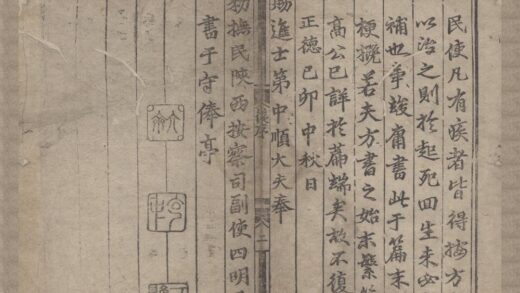 民使凡有疾者皆得按方
以治之則於起死回生未必
補也事竣庸書此于篇末
梗概若夫方書之始末繁簡
高公已詳於篇端矣故不復
正德己卯中秋日
賜進士第中順大夫奉
撫民陝西按察司副使四明
書于守俸亭
後序
二